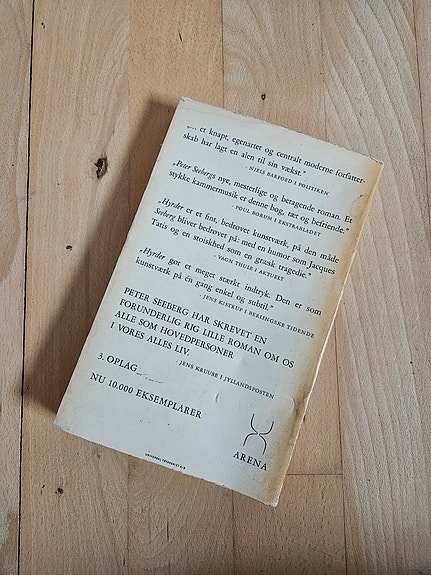 „... et knapt, egenartet og centralt moderne forfatter-
skab har lagt en alen til sin vækst."
- NIELS BARFOED I POLITIKEN
„Peter Seebergs nye, mesterlige og betagende roman. Et
stykke kammermusik er denne bog, tæt og befriende."
- POUL BORUM I EKSTRABLADET
„Hyrder er et fint, bedrøvet kunstværk, på den måde
Seeberg bliver bedrøvet på: med en humor som Jacques
Tatis og en stoiskhed som en græsk tragedie."
- VAGN THULE I AKTUELT
„Hyrder gør et meget stærkt indtryk. Den er som
kunstværk på én gang enkel og subtil."
- JENS KISTRUP I BERLINGSKE TIDENDE
PETER SEEBERG HAR SKREVET EN
FORUNDERLIG RIG LILLE ROMAN OM OS
ALLE SOM HOVEDPERSONER
I VORES ALLES LIV.
- JENS KRUUSE I JYLLANDSPOSTEN
3. OPLAG
NU 10.000 EKSEMPLARER
ARENA